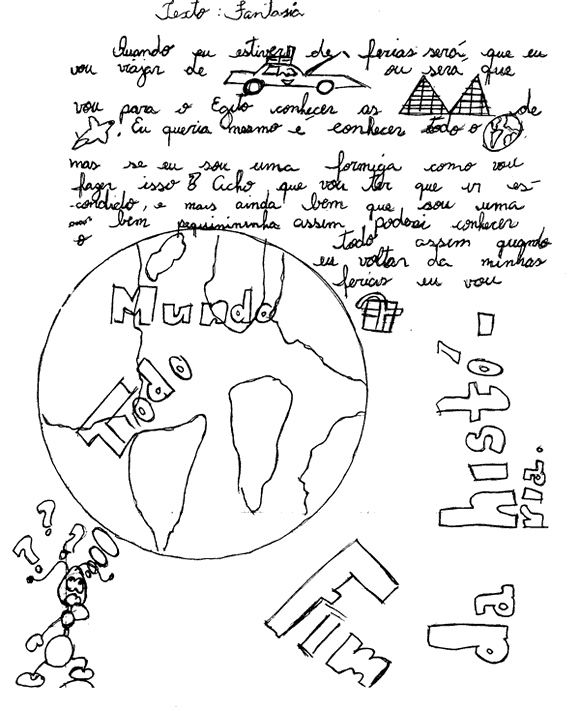 Texto : Fantasia
Quando eu estiver de ferias será que eu
vou viajar de ou será que
vou para o Egito conhecer as de
. Eu queria mesmo é conhecer todo o
mas se eu sou uma formiga como vou
fazer isso? Acho que vou ter que ir es-
condido, e mais ainda bem que sou uma
bem pequinininha assim poderei conhecer
o todo assim quando
eu voltar da minhas
ferias eu vou
Mundo
Todo
? ? ?
Fim
da histó-
ria.